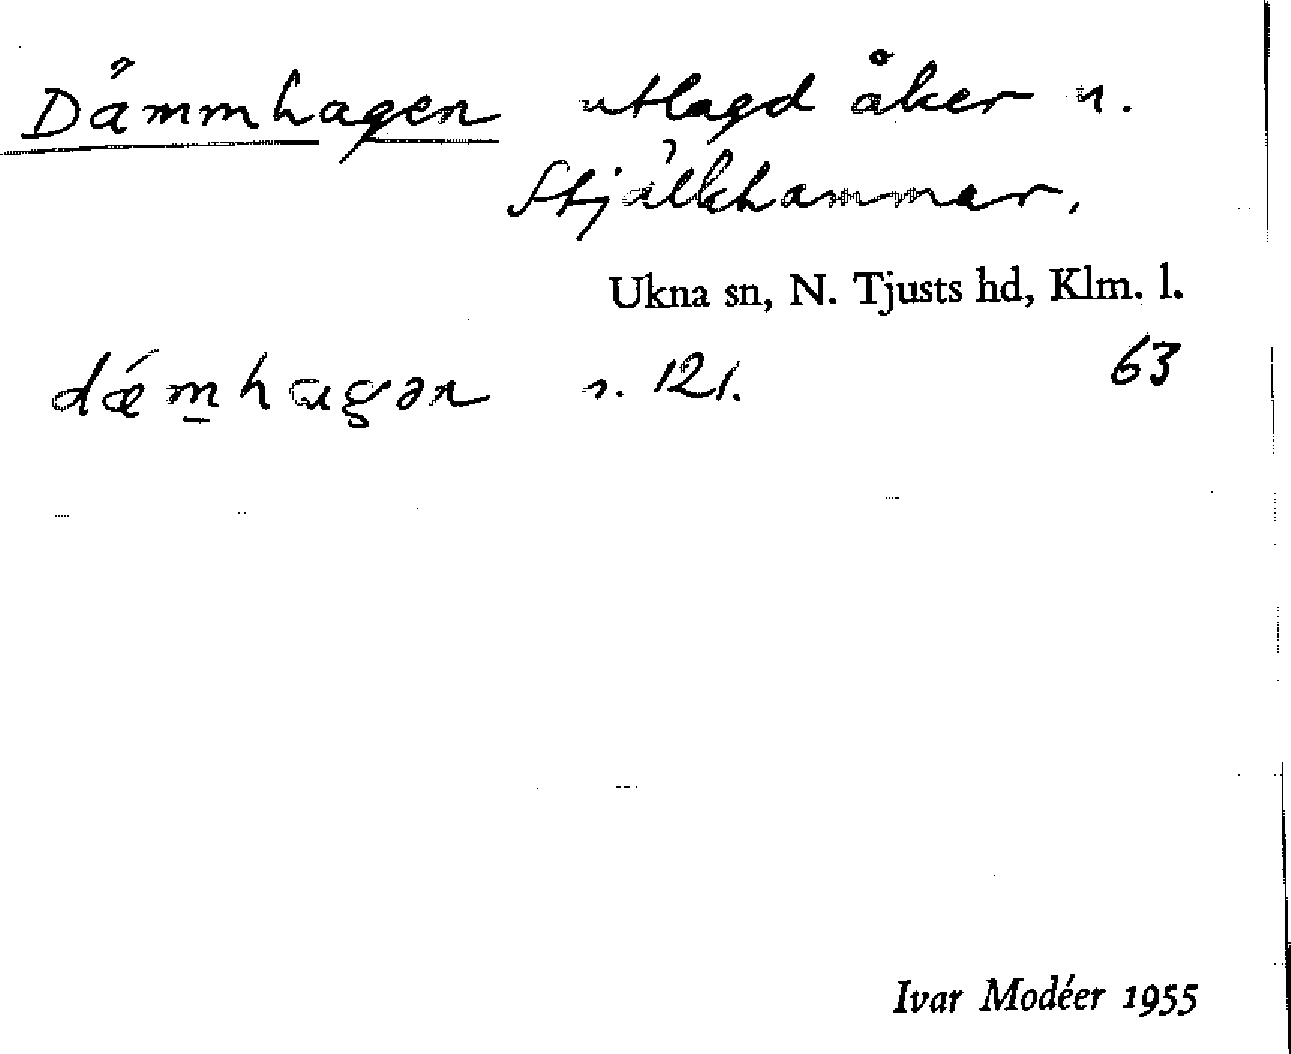 Dämmhagen utlagd åker u.
Stjälkhammar.
Ukna sn, N. Tjusts hd, Klm. l.
dǽm̱hagən s. 121. 63
Ivar Modéer 1955